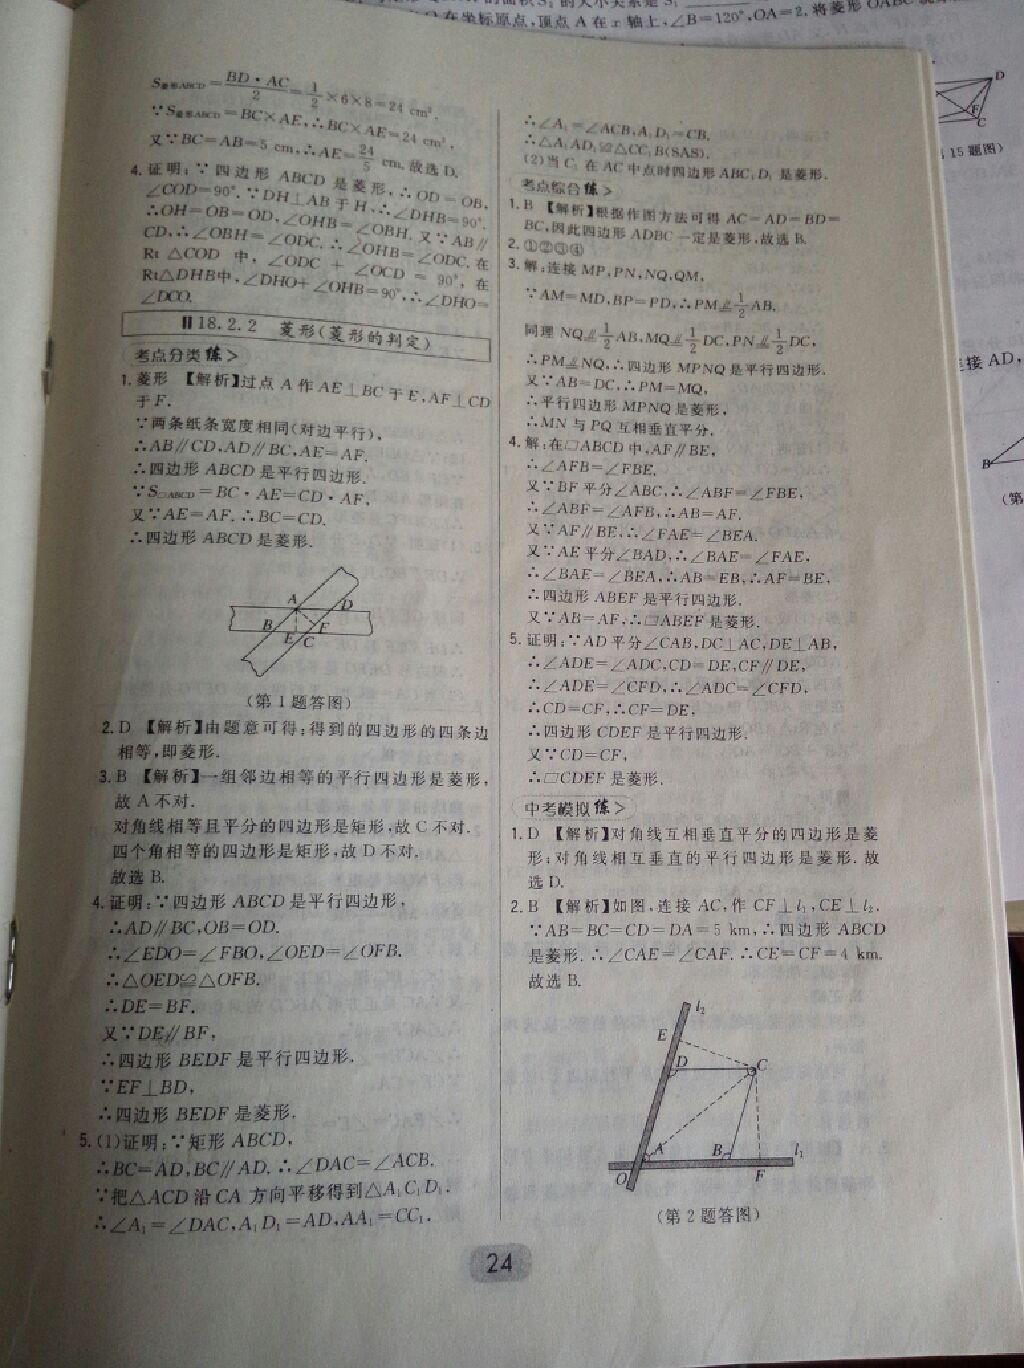 S菱形ABCD=BD·AC/2=1/2×6×8=24 cm².
∵S菱形ABCD=BC×AE,∴BC×AE=24 cm²,
又∵BC=AB=5 cm,∴AE=24/5 cm.故选D.
4.证明:∵四边形 ABCD 是菱形,∴OD=OB,
∠COD=90°.∵DH⊥AB 于 H,∴∠DHB=90°.
∴OH=OB=OD,∠OHB=∠OBH.又∵AB∥
CD,∴∠OBH=∠ODC.∴∠OHB=∠ODC.在
Rt△COD 中,∠ODC+∠OCD=90°,在
Rt△DHB中,∠DHO+∠OHB=90°,∴∠DHO=
∠DCO.
18.2.2 菱形(菱形的判定)
考点分类练>
1.菱形 【解析】过点 A 作 AE⊥BC 于 E,AF⊥CD
于 F.
∵两条纸条宽度相同(对边平行),
∴AB∥CD,AD∥BC,AE=AF.
∴四边形 ABCD 是平行四边形.
∵S□ABCD=BC·AE=CD·AF,
又∵AE=AF.∴BC=CD.
∴四边形 ABCD 是菱形.
A
D
B
E
C
F
(第1题答图)
2.D 【解析】由题意可得:得到的四边形的四条边
相等,即菱形.
3.B 【解析】一组邻边相等的平行四边形是菱形,
故 A 不对.
对角线相等且平分的四边形是矩形,故 C 不对.
四个角相等的四边形是矩形,故 D 不对.
故选 B.
4.证明:∵四边形 ABCD 是平行四边形,
∴AD∥BC,OB=OD.
∴∠EDO=∠FBO,∠OED=∠OFB.
∴△OED≌△OFB.
∴DE=BF.
又∵DE∥BF,
∴四边形 BEDF 是平行四边形.
∵EF⊥BD,
∴四边形 BEDF 是菱形.
5.(1)证明:∵矩形 ABCD,
∴BC=AD,BC∥AD.∴∠DAC=∠ACB.
∵把△ACD 沿 CA 方向平移得到△A₁C₁D₁.
∴∠A₁=∠DAC,A₁D₁=AD,AA₁=CC₁.
∴∠A₁=∠ACB,A₁D₁=CB.
∴△A₁AD₁≌△CC₁B(SAS).
(2)当 C₁ 在 AC 中点时四边形 ABC₁D₁ 是菱形.
考点综合练>
1.B 【解析】根据作图方法可得 AC=AD=BD=
BC,因此四边形 ADBC 一定是菱形,故选 B.
2.①②③④
3.解:连接 MP,PN,NQ,QM,
∵AM=MD,BP=PD,∴PM⫽1/2AB,
同理 NQ⫽1/2AB,MQ⫽1/2DC,PN⫽1/2DC,
∴PM⫽NQ,∴四边形 MPNQ 是平行四边形.
又∵AB=DC,∴PM=MQ,
∴平行四边形 MPNQ 是菱形,
∴MN 与 PQ 互相垂直平分.
4.解:在□ABCD 中,AF∥BE,
∴∠AFB=∠FBE.
又∵BF 平分∠ABC,∴∠ABF=∠FBE,
∴∠ABF=∠AFB,∴AB=AF.
又∵AF∥BE,∴∠FAE=∠BEA.
又∵AE 平分∠BAD,∴∠BAE=∠FAE,
∴∠BAE=∠BEA,∴AB=EB,∴AF=BE,
∴四边形 ABEF 是平行四边形.
又∵AB=AF,∴□ABEF 是菱形.
5.证明:∵AD 平分∠CAB,DC⊥AC,DE⊥AB,
∴∠ADE=∠ADC,CD=DE,CF∥DE,
∴∠ADE=∠CFD,∴∠ADC=∠CFD,
∴CD=CF,∴CF=DE,
∴四边形 CDEF 是平行四边形,
又∵CD=CF,
∴□CDEF 是菱形.
中考模拟练>
1.D 【解析】对角线互相垂直平分的四边形是菱
形;对角线相互垂直的平行四边形是菱形.故
选 D.
2.B 【解析】如图,连接 AC,作 CF⊥l₁,CE⊥l₂.
∵AB=BC=CD=DA=5 km,∴四边形 ABCD
是菱形.∴∠CAE=∠CAF.∴CE=CF=4 km.
故选 B.
l₂
E
D
C
A
B
l₁
O
F
(第2题答图)
24
在坐标原点,顶点 A 在 x 轴上,∠B=120°,OA=2,将菱形 OABC
D
F
C
15 题图)
连接 AD,
B
(第